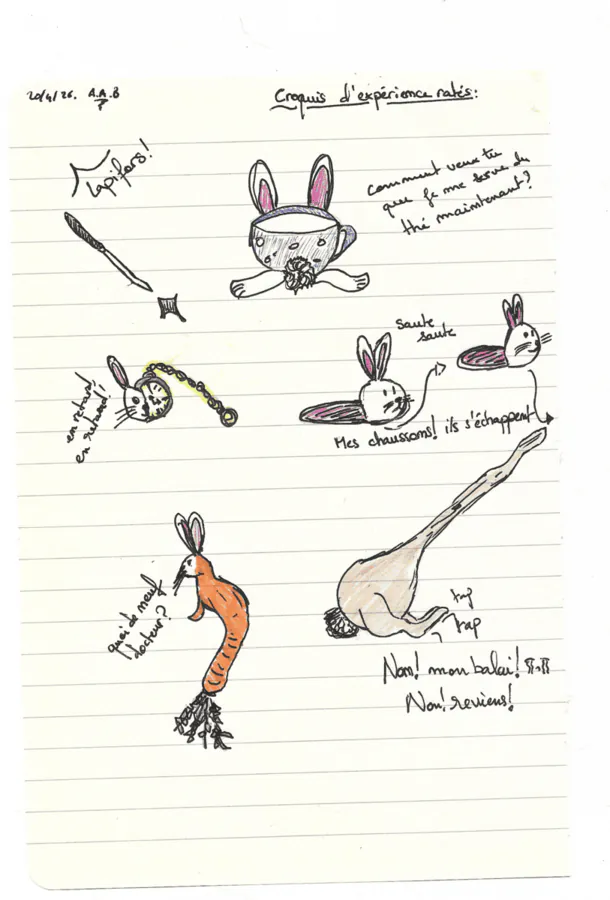 20/4/26. A.A.B
Croquis d'expérience ratés:
Lapifors!
comment veux tu
que je me serve du
thé maintenant?
saute
saute
en retard!
en retard!
Mes chaussons! ils s'échappent
quoi de neuf
docteur?
tap
tap
Non! mon balai!
Non! reviens!